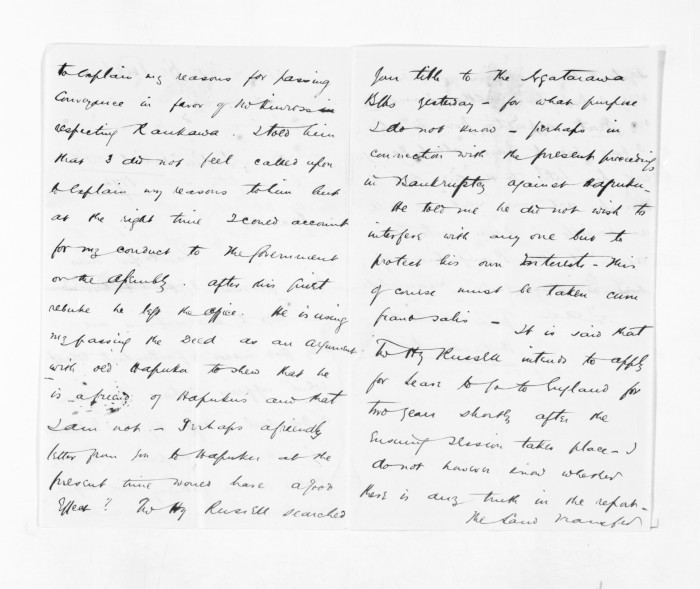 to explain my reasons for passing
Conveyance in favor of Mr Kinross in
respecting Raukawa. I told him
that I did not feel called upon
to explain my reasons to him but
at the right time I could account
for my conduct to the Government
or the Assembly. after this quiet
rebuke he left the office. He is using
my passing the Deed as an argument
with old Hapuku to shew that he
is a friend of Hapukus and that
I am not – Perhaps a friendly
letter from you to Hapuku at the
present time would have a good
Effect? Russell searched
Your title to the Ngatarawa
Blks yesterday – for what purpose
I do not know – perhaps in
connection with the present proceedings
in Bankruptcy against Hapuku –
He told me he did not wish to
interfere with any one but to
protect his own Interests – this
of course must be taken cum
grano salis – It is said that
Russell intends to apply
for Leave to go to England for
two years shortly after the
Ensuing Session takes place – I
do not however know whether
there is any truth in the report –
The Land Transfer